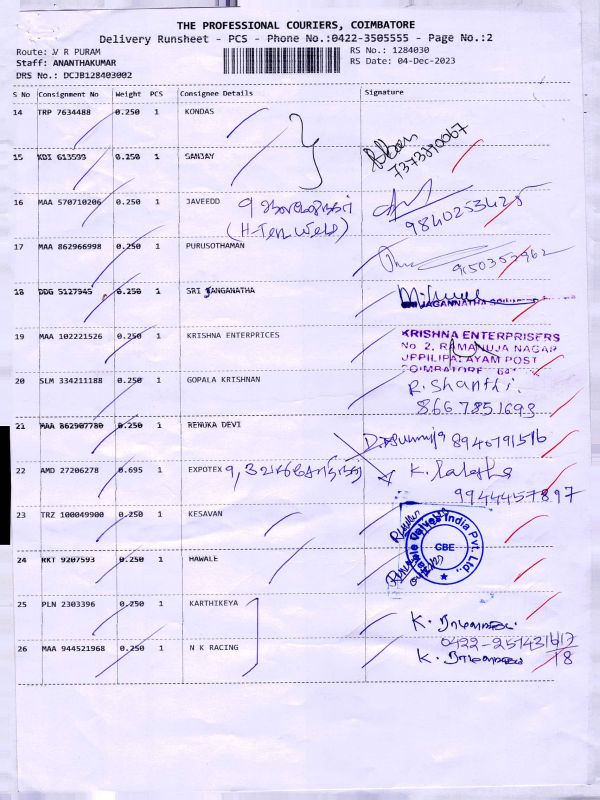 THE PROFESSIONAL COURIERS, COIMBATORE
Delivery Runsheet - PCS - Phone No.:0422-3505555 - Page No.:2
Route: V R PURAM
RS No.: 1284030
Staff: ANANTHAKUMAR
RS Date: 04-Dec-2023
DRS No.: DCJB128403002
S No Consignment No Weight PCS Consignee Details Signature
14 TRP 7634488 0.250 1 KONDAS
7373890067
15 KDI 613599 0.250 1 SANJAY
16 MAA 570710206 0.250 1 JAVEEDD
(H-Tex Weld) 9840253425
17 MAA 862966998 0.250 1 PURUSOTHAMAN
9150352962
18 DDG 5127945 0.250 1 SRI JANGANATHA
19 MAA 102221526 0.250 1 KRISHNA ENTERPRICES
KRISHNA ENTERPRISERS
No 2, RAMANUJA NAGAR
UPPILIPALAYAM POST
COIMBATORE - 641
20 SLM 334211188 0.250 1 GOPALA KRISHNAN
R. Shanthi.
866 785 1693
21 MAA 862907780 0.250 1 RENUKA DEVI
8940791516
22 AMD 27206278 0.695 1 EXPOTEX
K. Lalitha
9944457897
23 TRZ 100049900 0.250 1 KESAVAN
Hawle Valves India Pvt. Ltd.,
CBE
24 RKT 9207593 0.250 1 HAWALE
25 PLN 2303396 0.250 1 KARTHIKEYA
0422-2574316/17
/18
26 MAA 944521968 0.250 1 N K RACING